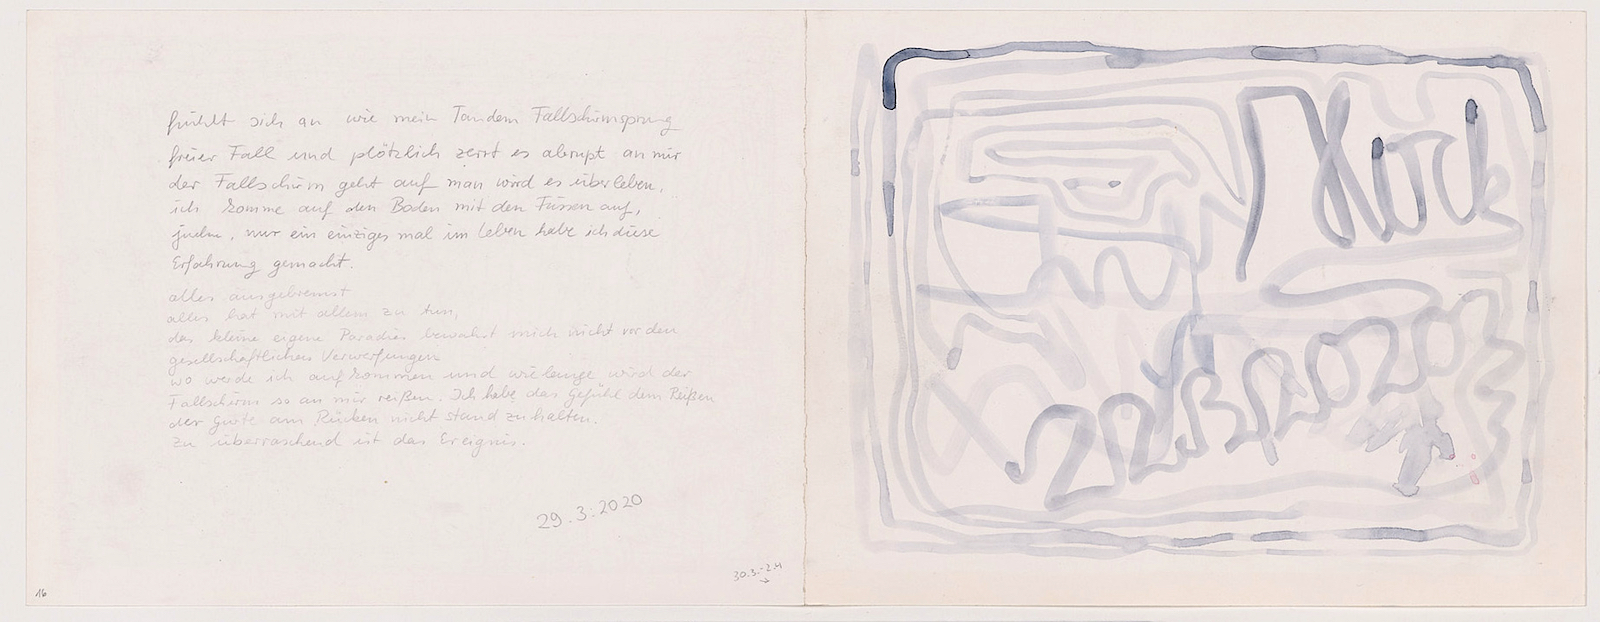 fühlt sich an wie mein Tandem Fallschirmsprung
freier Fall und plötzlich zerrt es abrupt an mir
der Fallschirm geht auf man wird es überleben,
ich komme auf den Boden mit den Füssen auf,
juchu, nur ein einziges mal im Leben habe ich diese
Erfahrung gemacht.
alles ausgebremst
alles hat mit allem zu tun,
das kleine eigene Paradies bewahrt mich nicht vor den
gesellschaftlichen Verwerfungen
wo werde ich aufkommen und wie lange wird der
Fallschirm so an mir reißen. Ich habe das Gefühl dem Reißen
der Gurte am Rücken nicht stand zu halten.
zu überraschend ist das Ereignis.
29.3.2020
16